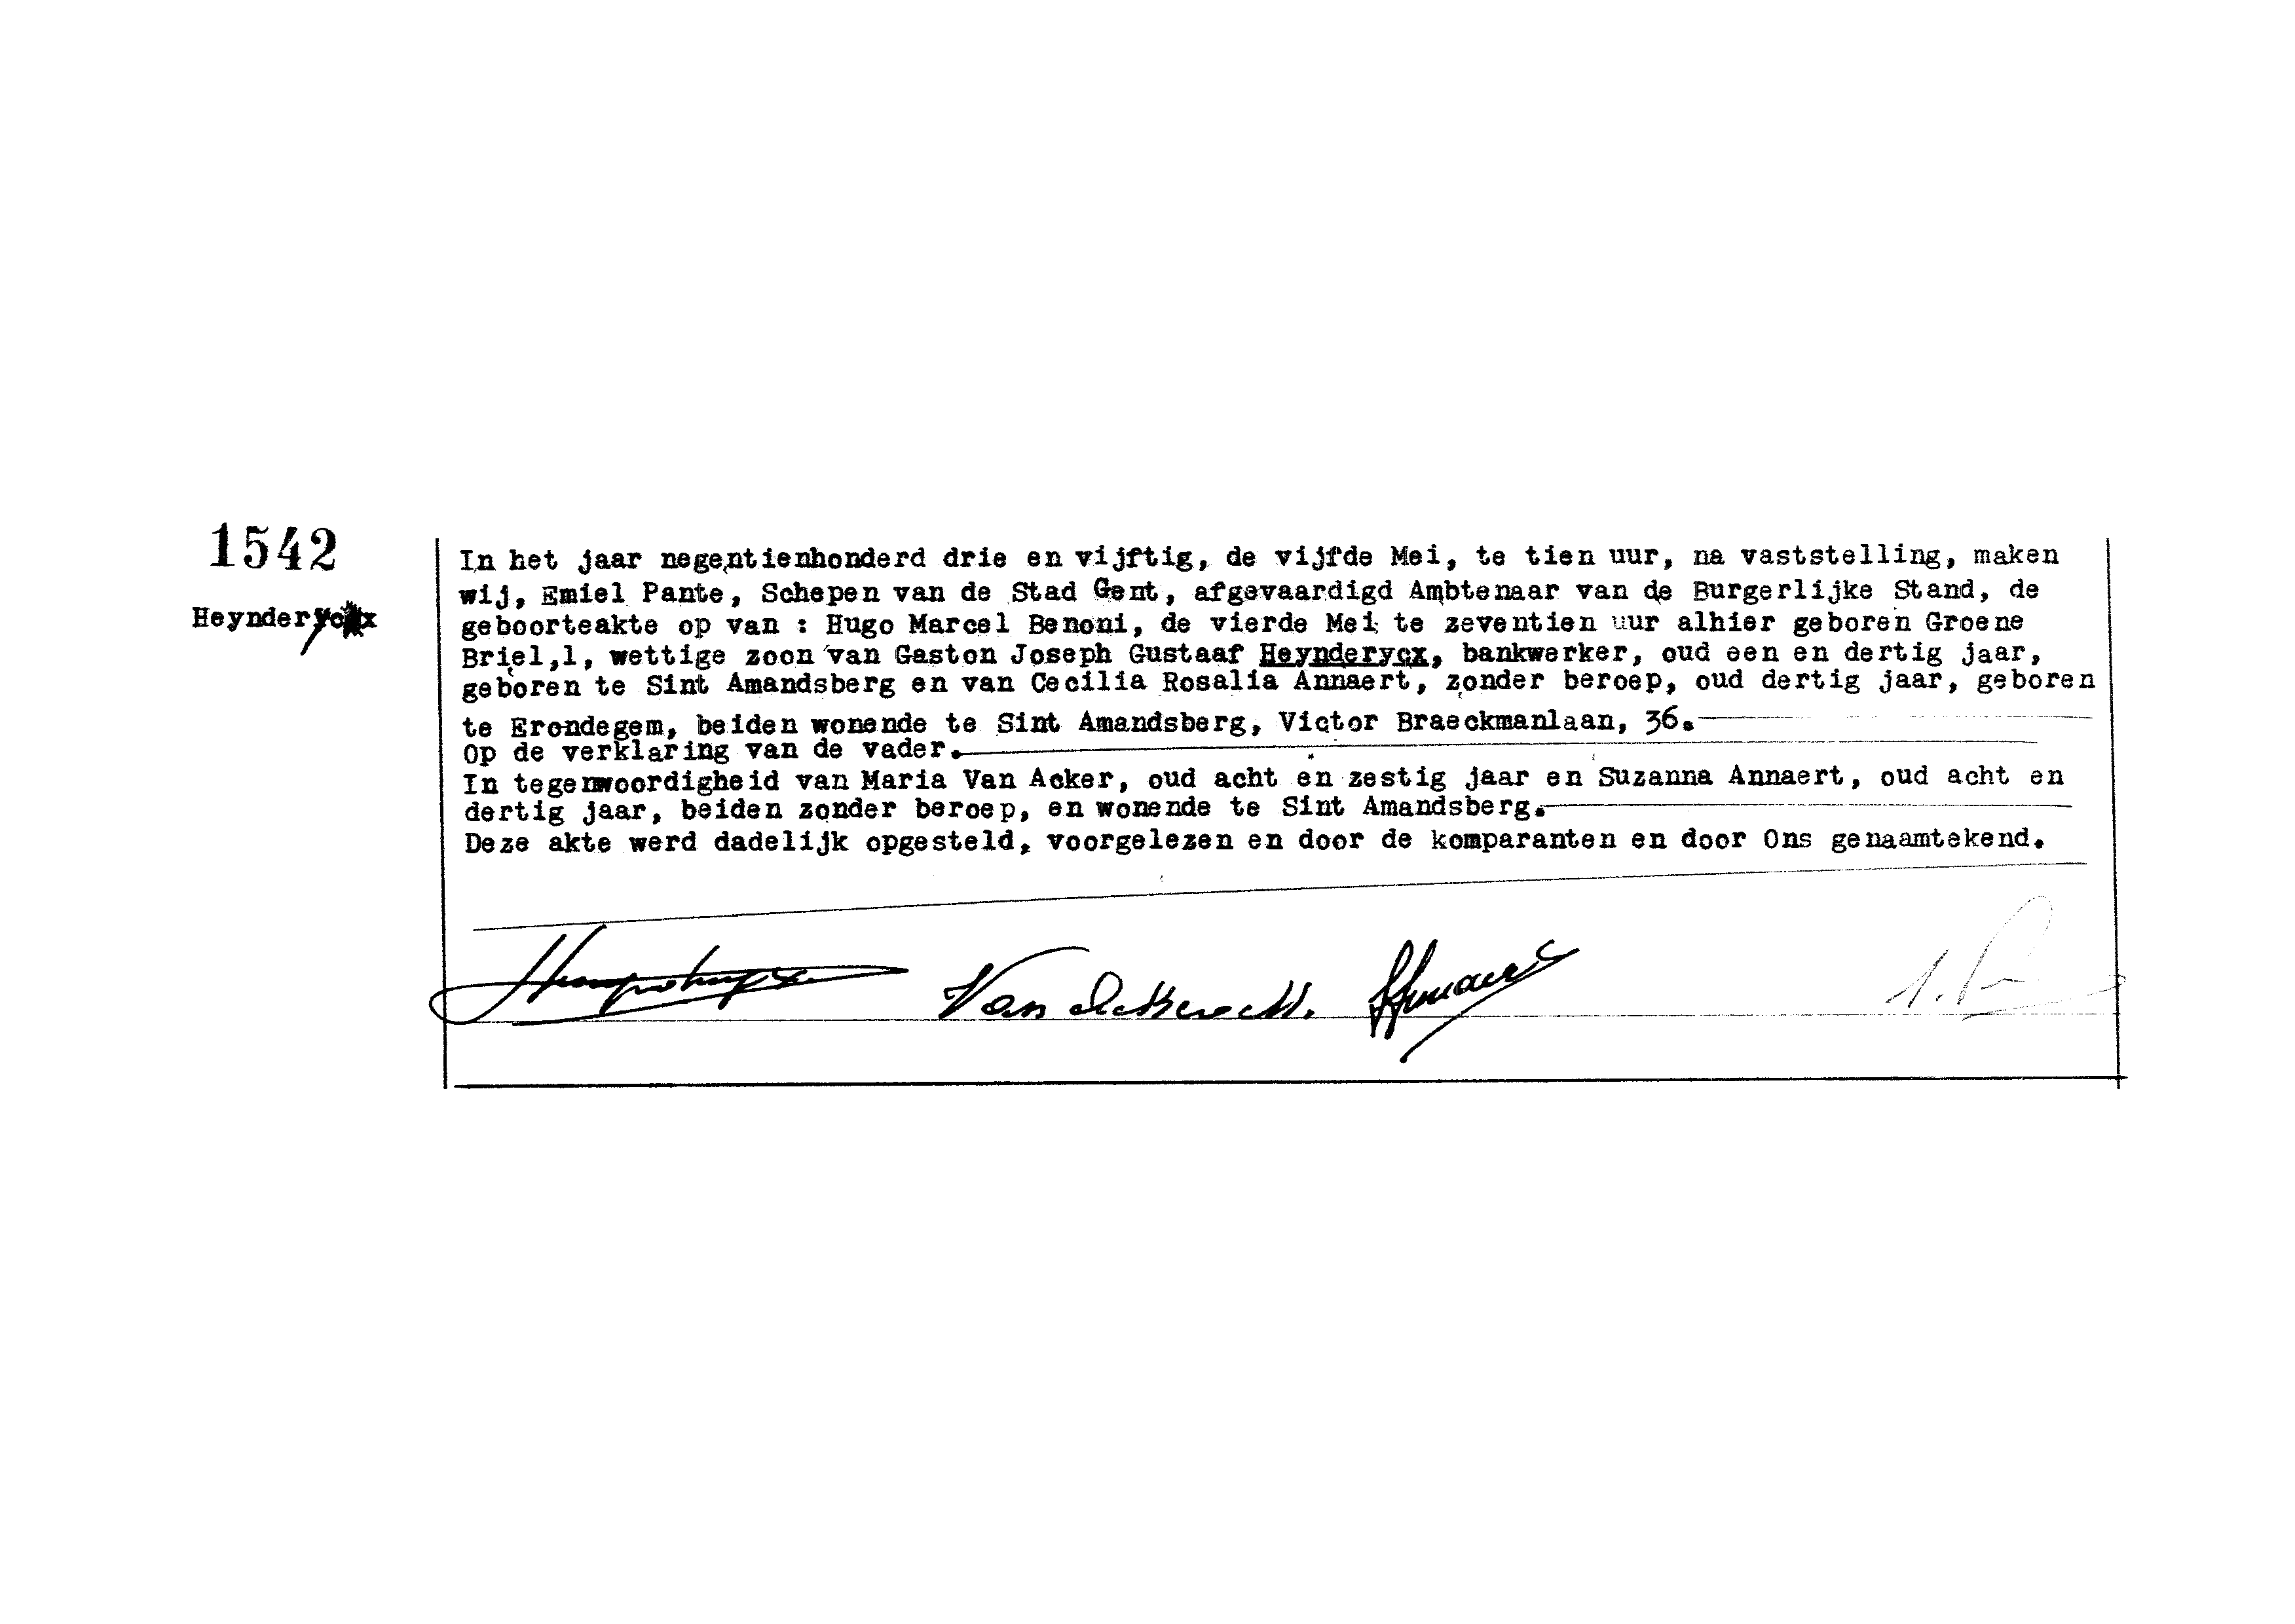 1542
Heynderycx
In het jaar negentienhonderd drie en vijftig, de vijfde Mei, te tien uur, na vaststelling, maken
wij, Emiel Pante, Schepen van de Stad Gent, afgevaardigd Ambtenaar van de Burgerlijke Stand, de
geboorteakte op van : Hugo Marcel Benoni, de vierde Mei te zeventien uur alhier geboren Groene
Briel,1, wettige zoon van Gaston Joseph Gustaaf Heynderycx, bankwerker, oud een en dertig jaar,
geboren te Sint Amandsberg en van Cecilia Rosalia Annaert, zonder beroep, oud dertig jaar, geboren
te Erondegem, beiden wonende te Sint Amandsberg, Victor Braeckmanlaan, 36.
Op de verklaring van de vader.
In tegenwoordigheid van Maria Van Acker, oud acht en zestig jaar en Suzanna Annaert, oud acht en
dertig jaar, beiden zonder beroep, en wonende te Sint Amandsberg.
Deze akte werd dadelijk opgesteld, voorgelezen en door de komparanten en door Ons genaamtekend.